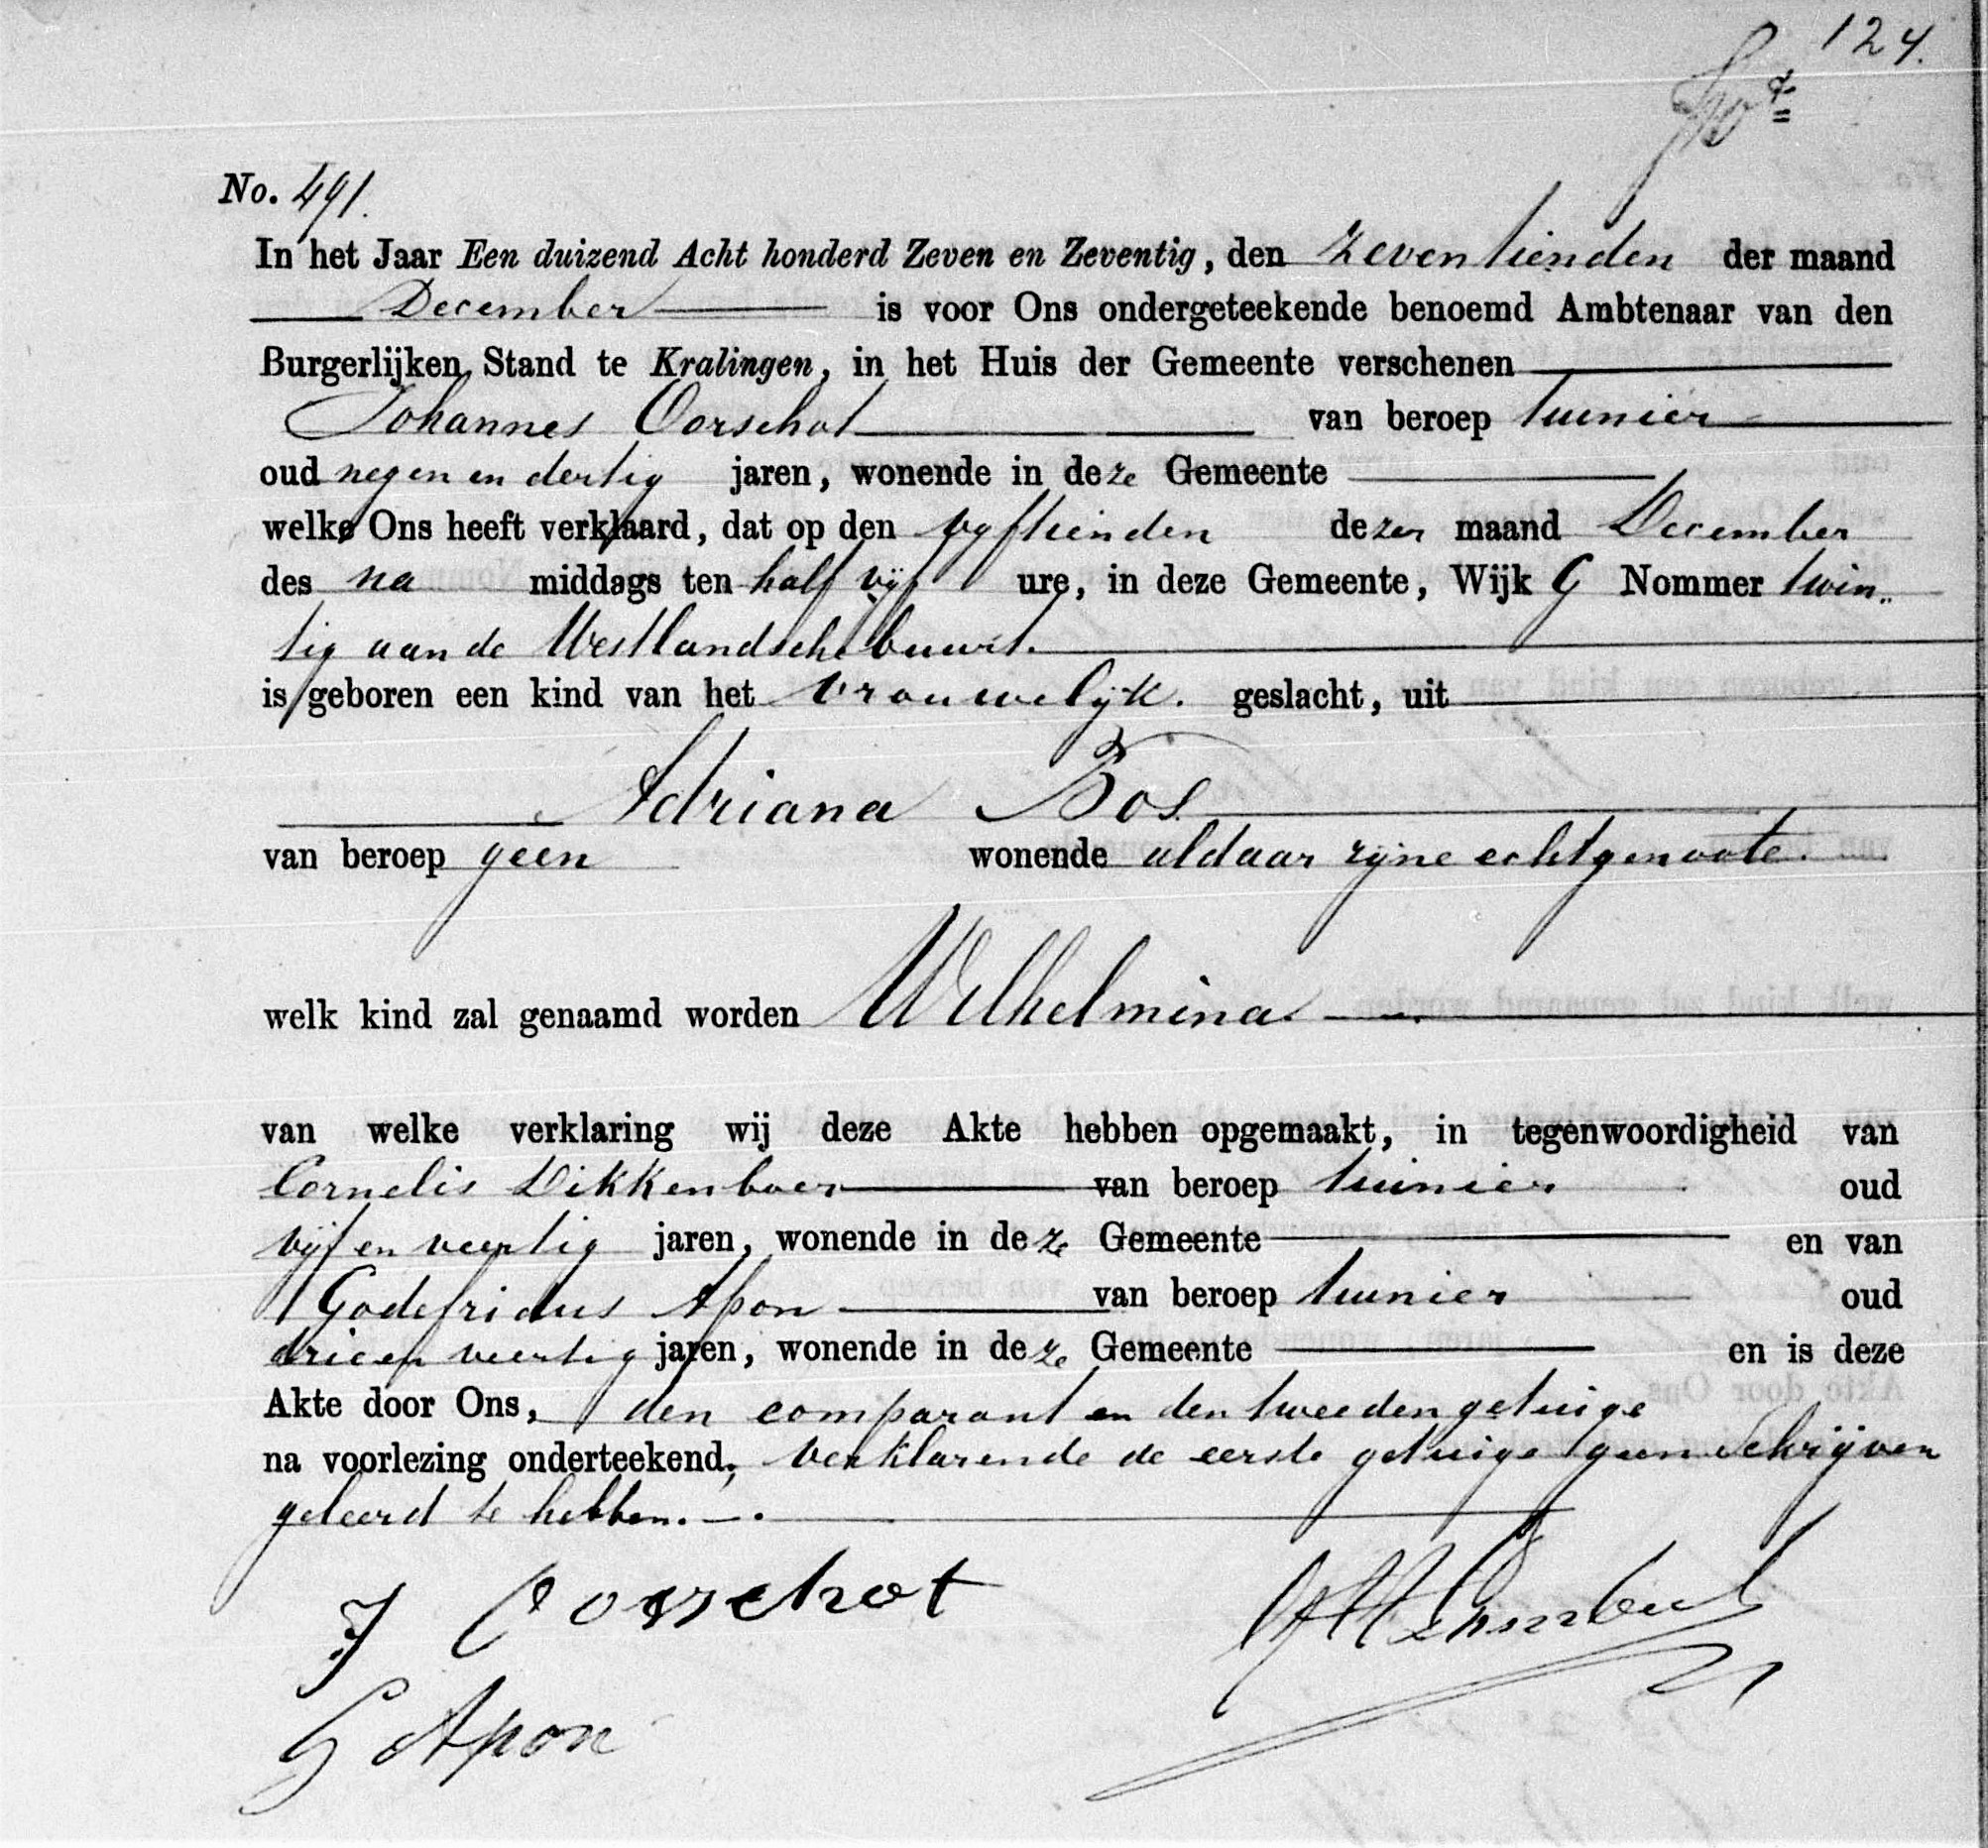 124.
No. 491.
In het Jaar Een duizend Acht honderd Zeven en Zeventig, den zeventienden der maand
December is voor Ons ondergeteekende benoemd Ambtenaar van den
Burgerlijken Stand te Kralingen, in het Huis der Gemeente verschenen
Johannes Oorschot van beroep tuinier
oud negen en dertig jaren, wonende in deze Gemeente
welke Ons heeft verklaard, dat op den vyftienden dezer maand December
des na middags ten half vijf ure, in deze Gemeente, Wijk G Nommer twin„
tig aan de Westlandsche buurt.
is geboren een kind van het vrouwelijk. geslacht, uit
Adriana Bos
van beroep geen wonende aldaar zijne echtgenoote.
welk kind zal genaamd worden Wilhelmina.
van welke verklaring wij deze Akte hebben opgemaakt, in tegenwoordigheid van
Cornelis Dikkenboer van beroep tuinier oud
vijf en veertig jaren, wonende in deze Gemeente en van
Godefridus Apon van beroep tuinier oud
drie en veertig jaren, wonende in deze Gemeente en is deze
Akte door Ons, den comparant en den tweeden getuige
na voorlezing onderteekend, verklarende de eerste getuige geen Schrijven
geleerd te hebben.
J Oorschot
G Apon